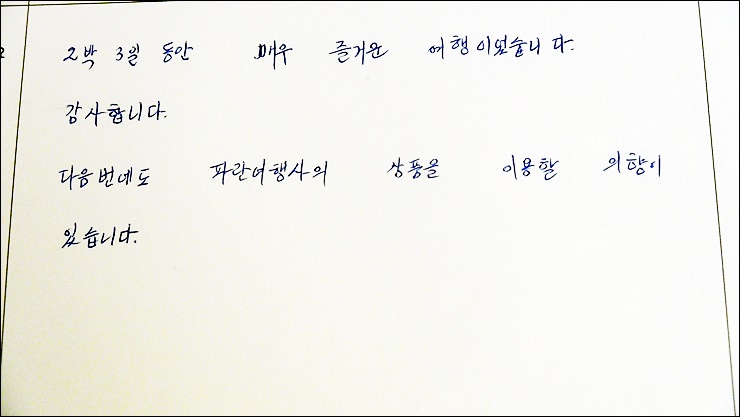 2박 3일 동안 매우 즐거운 여행이었습니다.
감사합니다.
다음번에도 파란여행사의 상품을 이용할 의향이
있습니다.